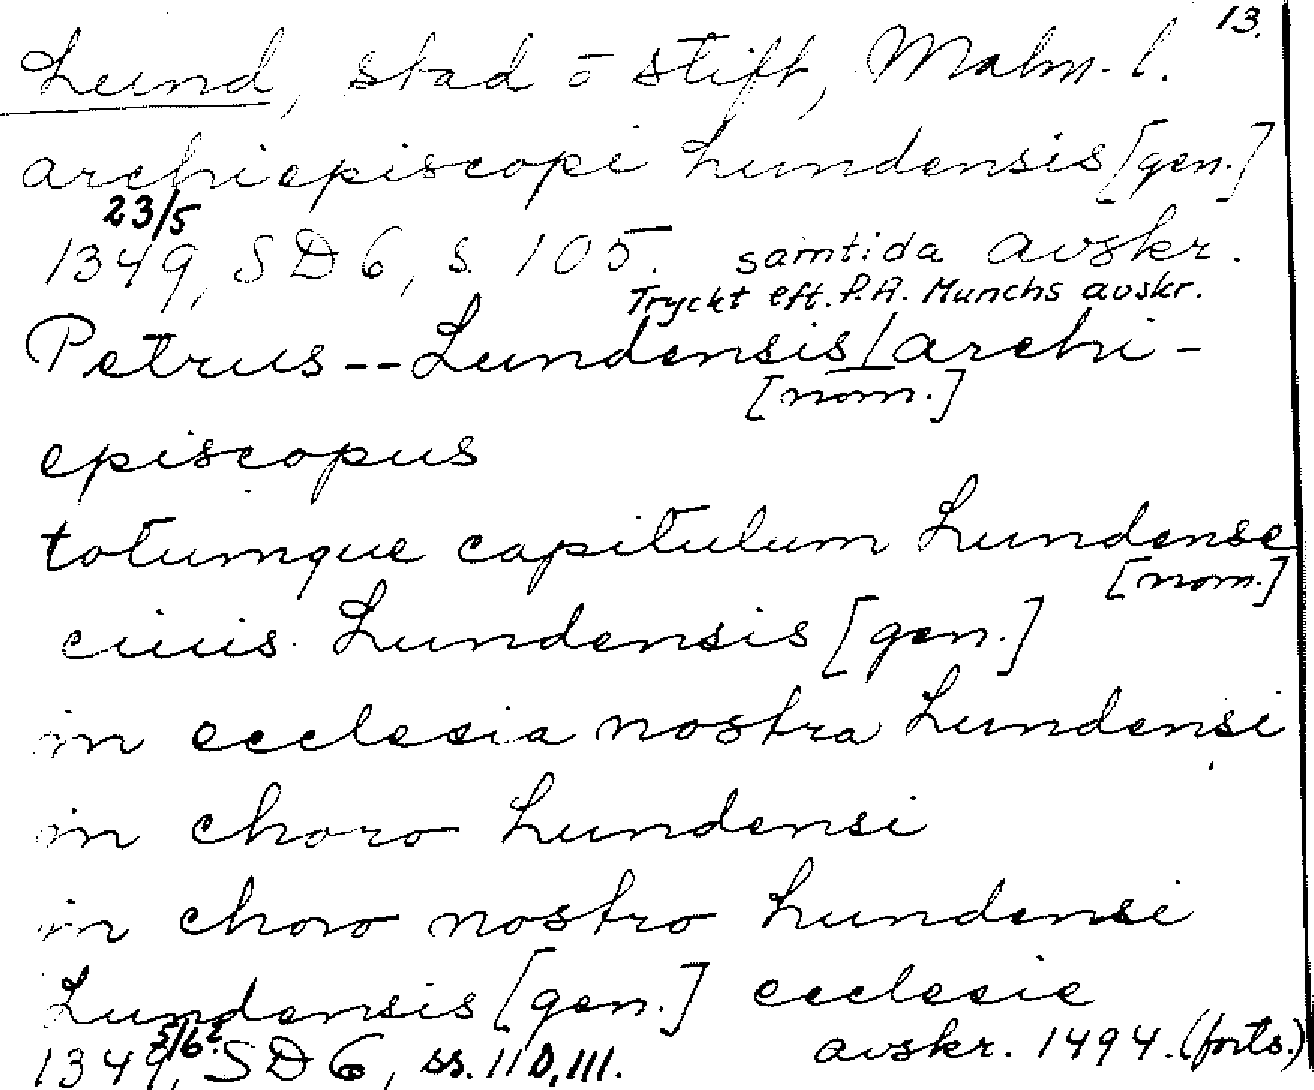 13.
Lund, stad o stift, Malm. l.
archiepiscopi Lundensis [gen.]
23/5
1349, SD 6, s. 105. samtida avskr.
Tryckt eft. P.A. Munchs avskr.
Petrus -- Lundensis / archi-
[nom.]
episcopus
totumque capitulum Lundense
[nom.]
ciuis Lundensis [gen.]
in ecclesia nostra Lundensi
in choro Lundensi
in choro nostro Lundensi
Lundensis [gen.] ecclesie
1349, SD 6, ss. 110, 111. avskr. 1494. (forts.)